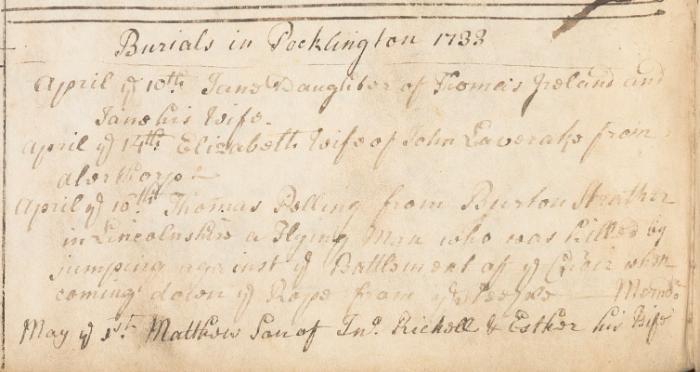 Burials in Pocklington 1733
April ye 10th Jane Daughter of Thomas Ireland and
Jane his Wife.
April ye 14th Elizabeth Wife of John Laverake from
Alerthorp
April ye 16th Thomas Pelling from Burton Strather
in Lincolnshire a Flying Man who was killed by
jumping against ye Battlement of ye Choir when
coming down ye Rope from ye Steeple
May ye 1st Matthew Son of Jno. Rickell & Esther his Wife